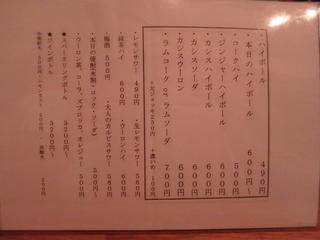 ・ハイボール 490円
・本日のハイボール 600円〜
・コークハイ 500円
・ジンジャーハイボール 600円
・カシスハイボール 600円
・カシスソーダ 600円
・カシスウーロン 600円
・ラムコーク or ラムソーダ 700円
+大ジョッキ250円 +濃いめ 100円
・レモンサワー 490円
・生レモンサワー 580円
・緑茶ハイ 600円
・ウーロンハイ 600円
・梅酒 500円〜
・大人のカルピスサワー 580円
・本日の焼酎(水割・ロック・ソーダ) 500円〜
・ウーロン茶、コーラ、ズブロック、オレジュー 500円
★スパークリングボトル 3200円〜
★ワインボトル 3200円〜